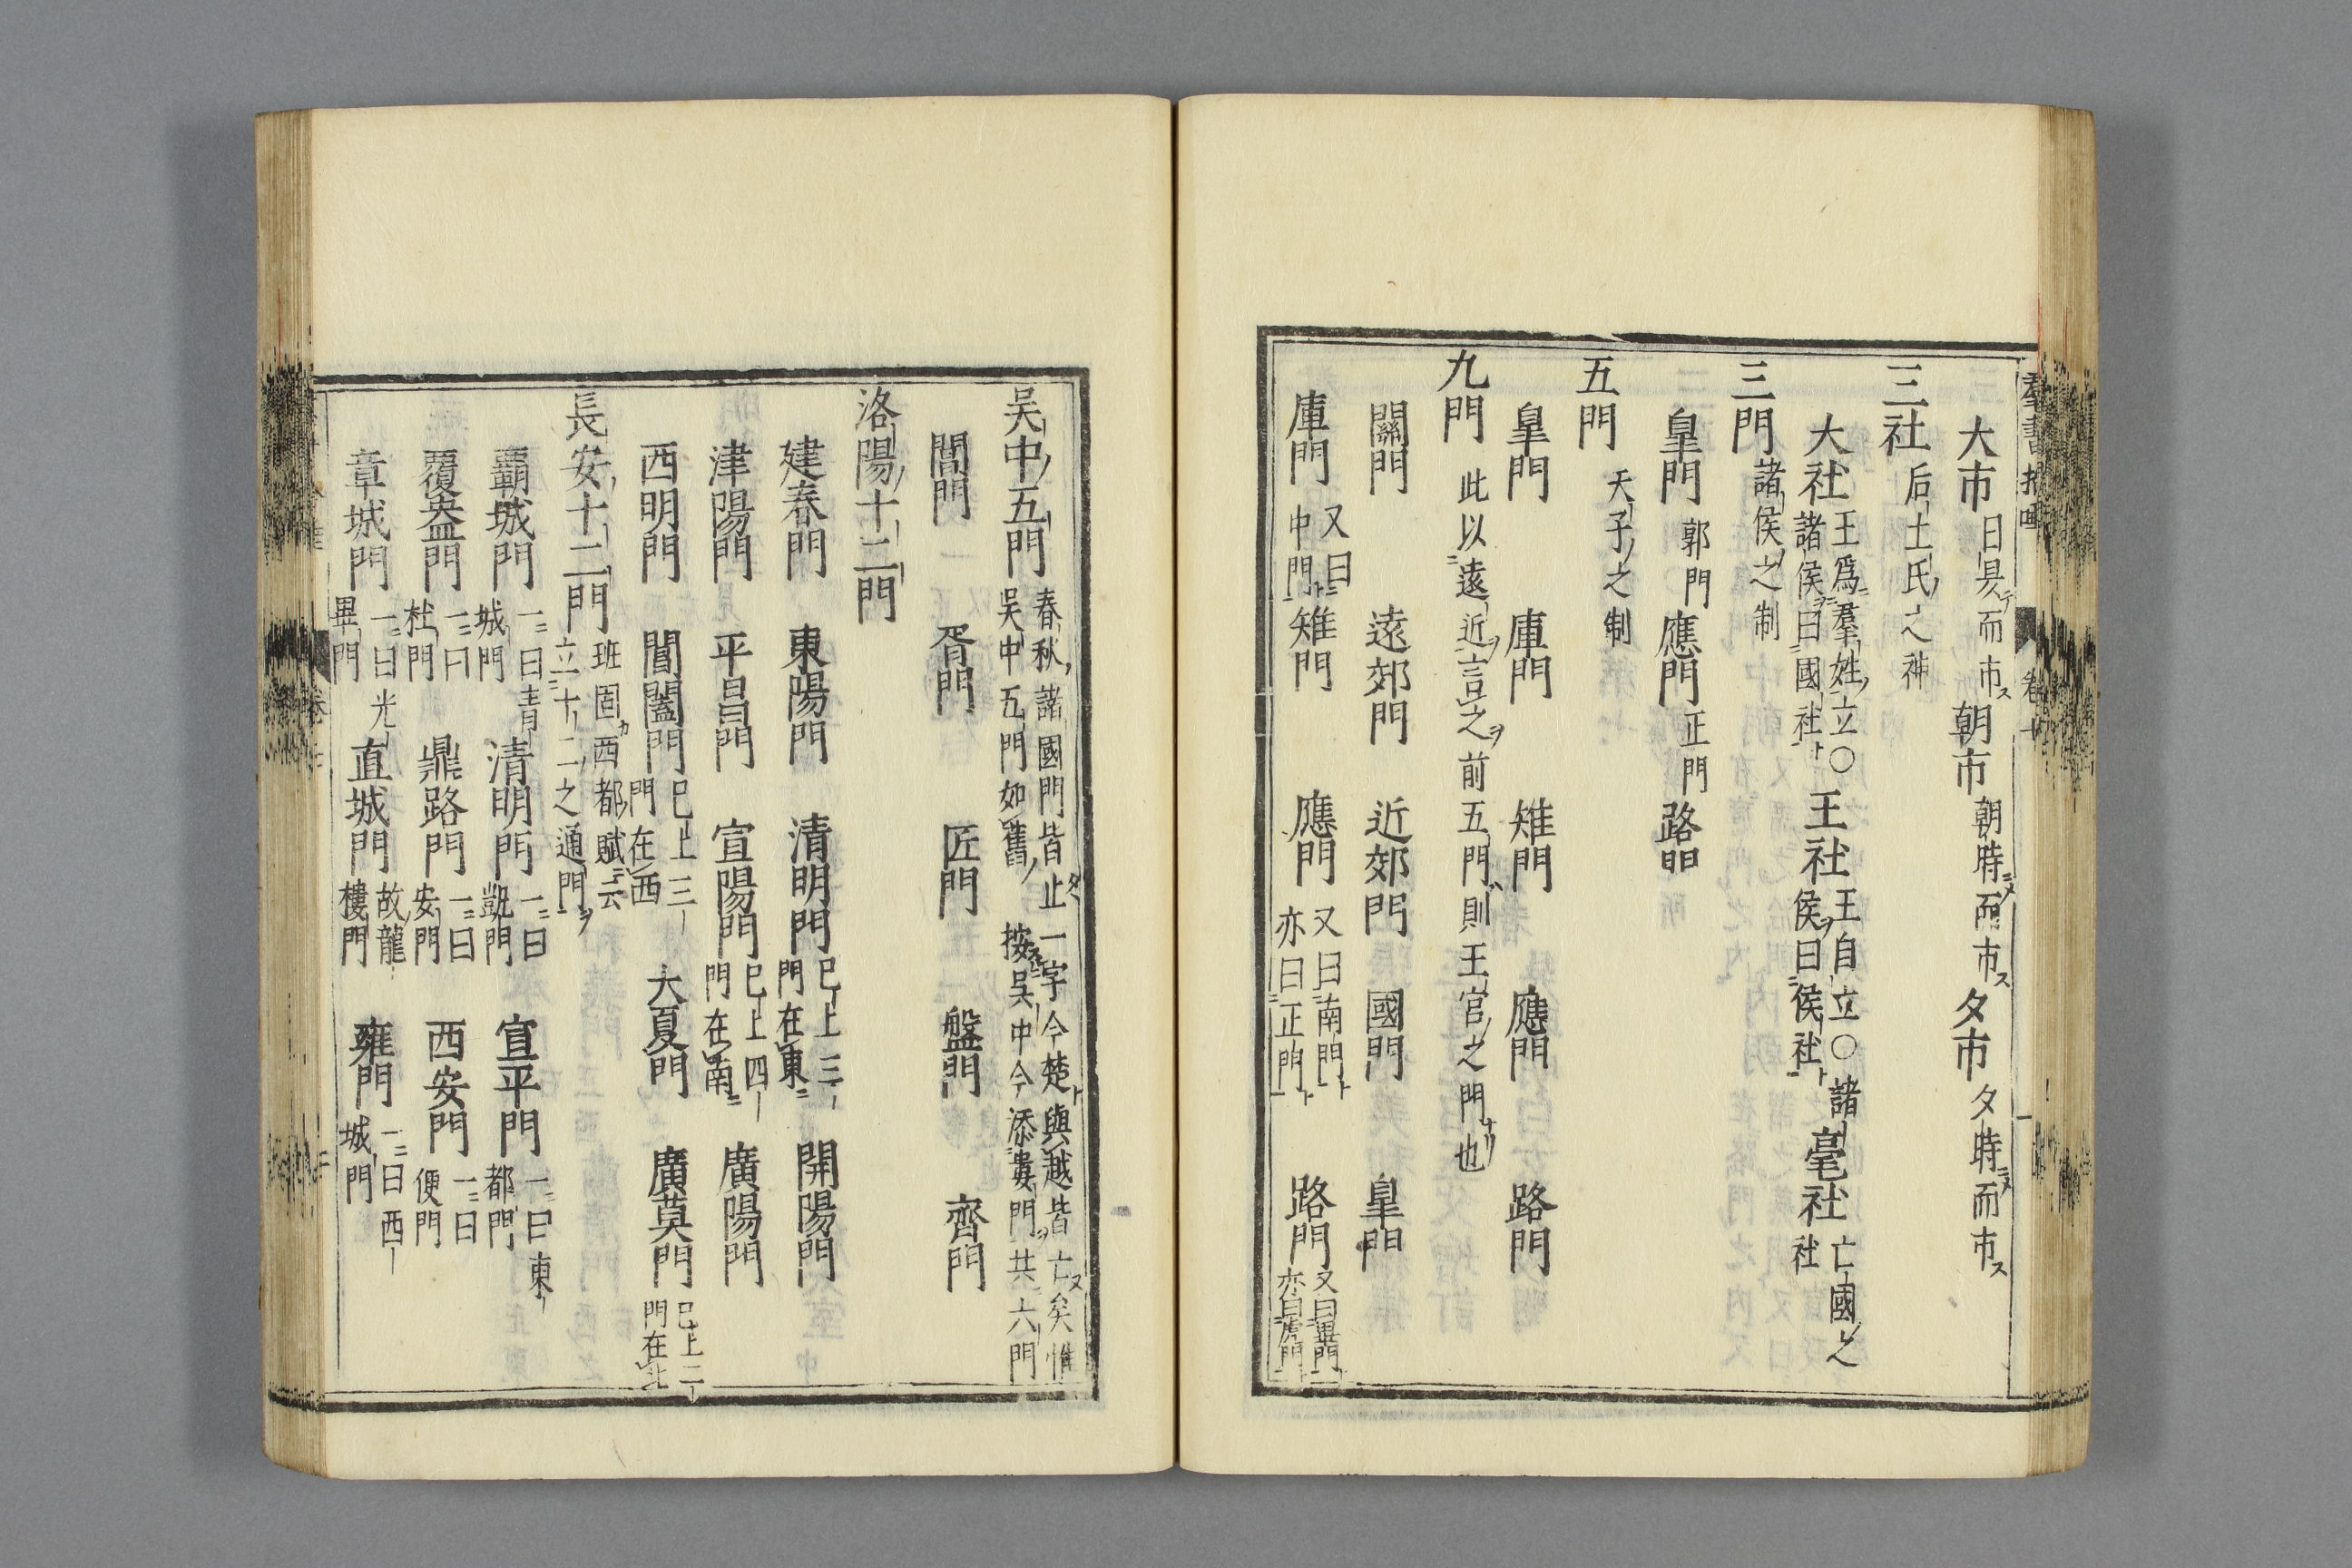 羣書拾唾 卷十
大市 日昃而市 朝市 朝時而市 夕市 夕時而市
三社 后土氏之神
大社 王爲羣姓立〇諸侯曰國社 王社 王自立〇諸侯曰侯社 亳社 亡國之社
三門 諸侯之制
皐門 郭門 應門 正門 路門
五門 天子之制
皐門 庫門 雉門 應門 路門
九門 此以遠近言之前五門則王宮之門也
關門 遠郊門 近郊門 國門 皐門
庫門 又曰中門 雉門 應門 又曰南門亦曰正門 路門 又曰畢門亦曰虎門
吳中五門 春秋諸國門皆止一字今楚與越皆亡矣惟吳中五門如舊按吳中今添婁門共六門
閶門 胥門 匠門 盤門 齊門
洛陽十二門
建春門 東陽門 清明門 已上三門在東 開陽門
津陽門 平昌門 宣陽門 已上四門在南 廣陽門
西明門 閶闔門 已上三門在西 大夏門 廣莫門 已上二門在北
長安十二門 班固西都賦云立十二之通門
霸城門 一曰青城門 清明門 一曰凱門 宣平門 一曰東都門
覆盎門 一曰杜門 鼎路門 一曰安門 西安門 一曰便門
章城門 一曰光畢門 直城門 故龍樓門 雍門 一曰西城門